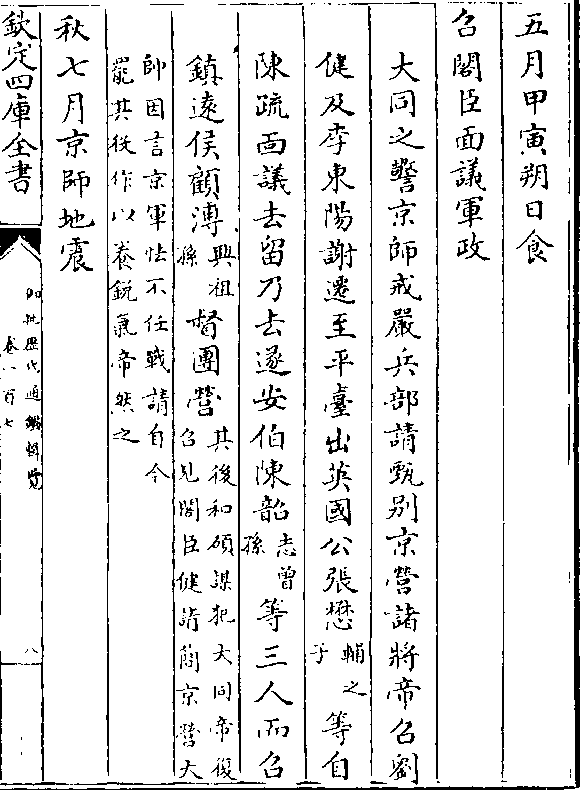 五月甲寅朔日食
召閣臣面議軍政
大同之警京師戒嚴兵部請甄别京營諸將帝召劉
健及李東陽謝遷至平臺出英國公張懋輔之子等自
陳疏面議去留乃去遂安伯陳韶志曾孫等三人而召
鎮遠侯顧溥興祖孫督團營其後和碩謀犯大同帝復召見閣臣健請簡京營大
帥因言京軍怯不任戰請自今罷其役作以養鋭氣帝然之
秋七月京師地震
欽定四庫全書
御批歷代通鑑輯覽
卷一百七
八